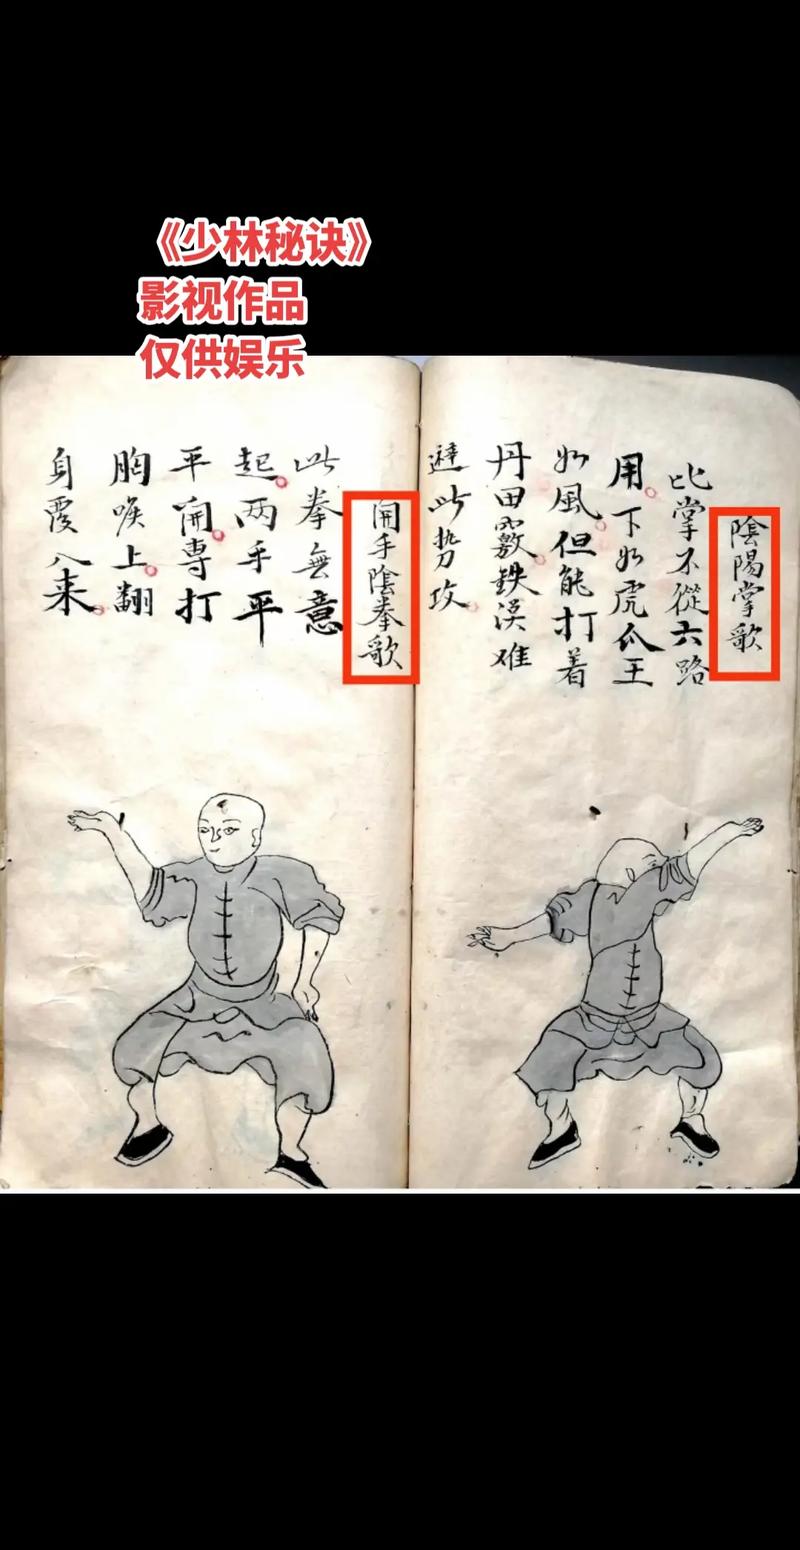 《少林秘诀》
影视作品
仅供娱乐
陰陽掌歌
比掌不從六路
用下如虎爪王
如風但能打着
丹田竅鉄漢难
避此勢攻
開手陰拳歌
此拳無意
起两手平
平開專打
胸喉上翻
身覆入来